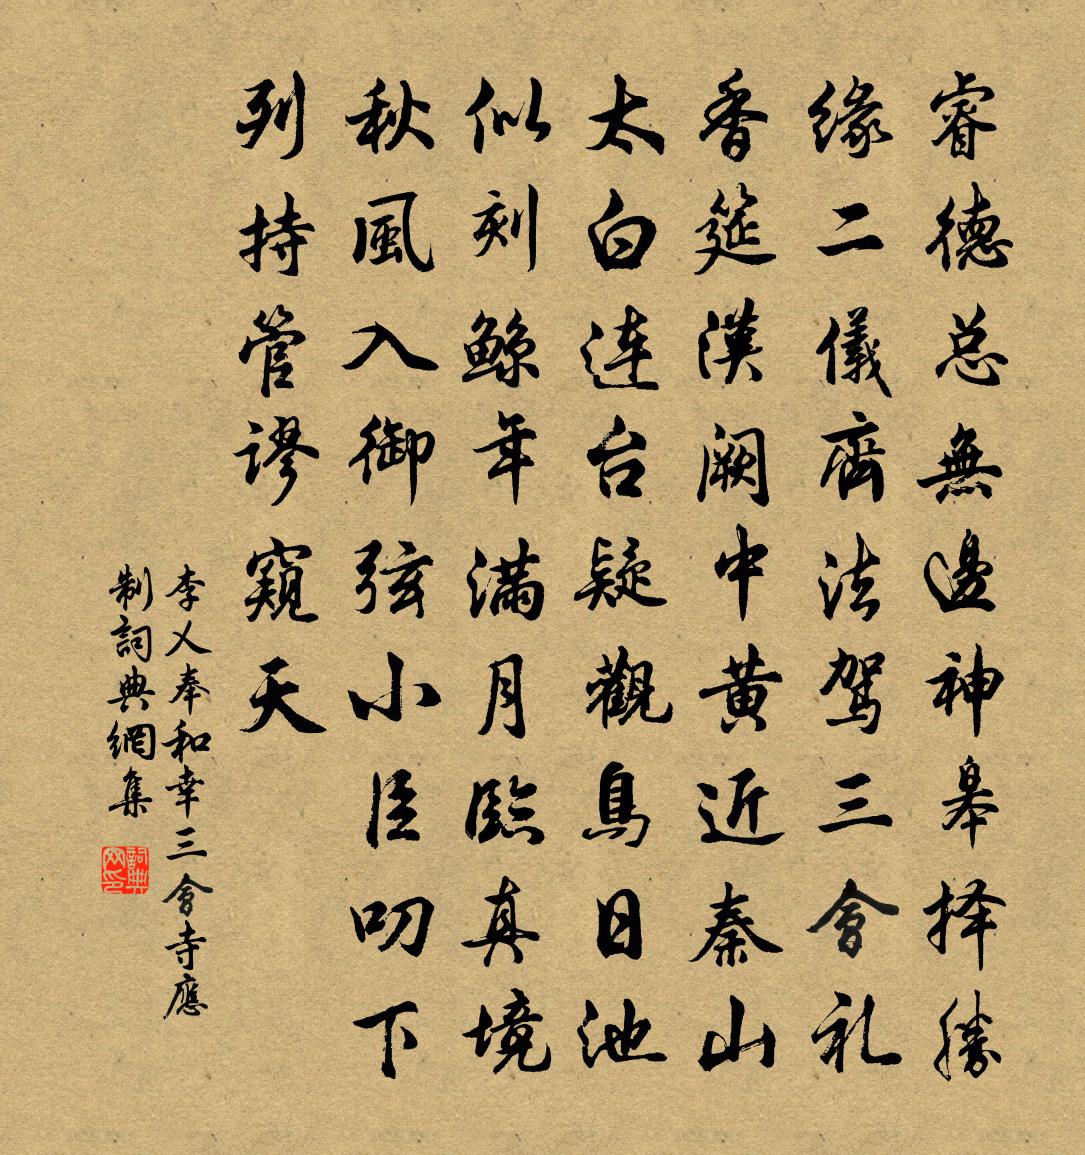 睿德总無邊神皋择勝
缘二儀齊法駕三會礼
香筵漢阙中黄近秦山
太白連台疑觀鳥日池
似刻鲸年滿月臨真境
秋風入御弦小臣叨下
列持管谬窺天
李乂奉和幸三會寺應
制詞典網集
詞典网印